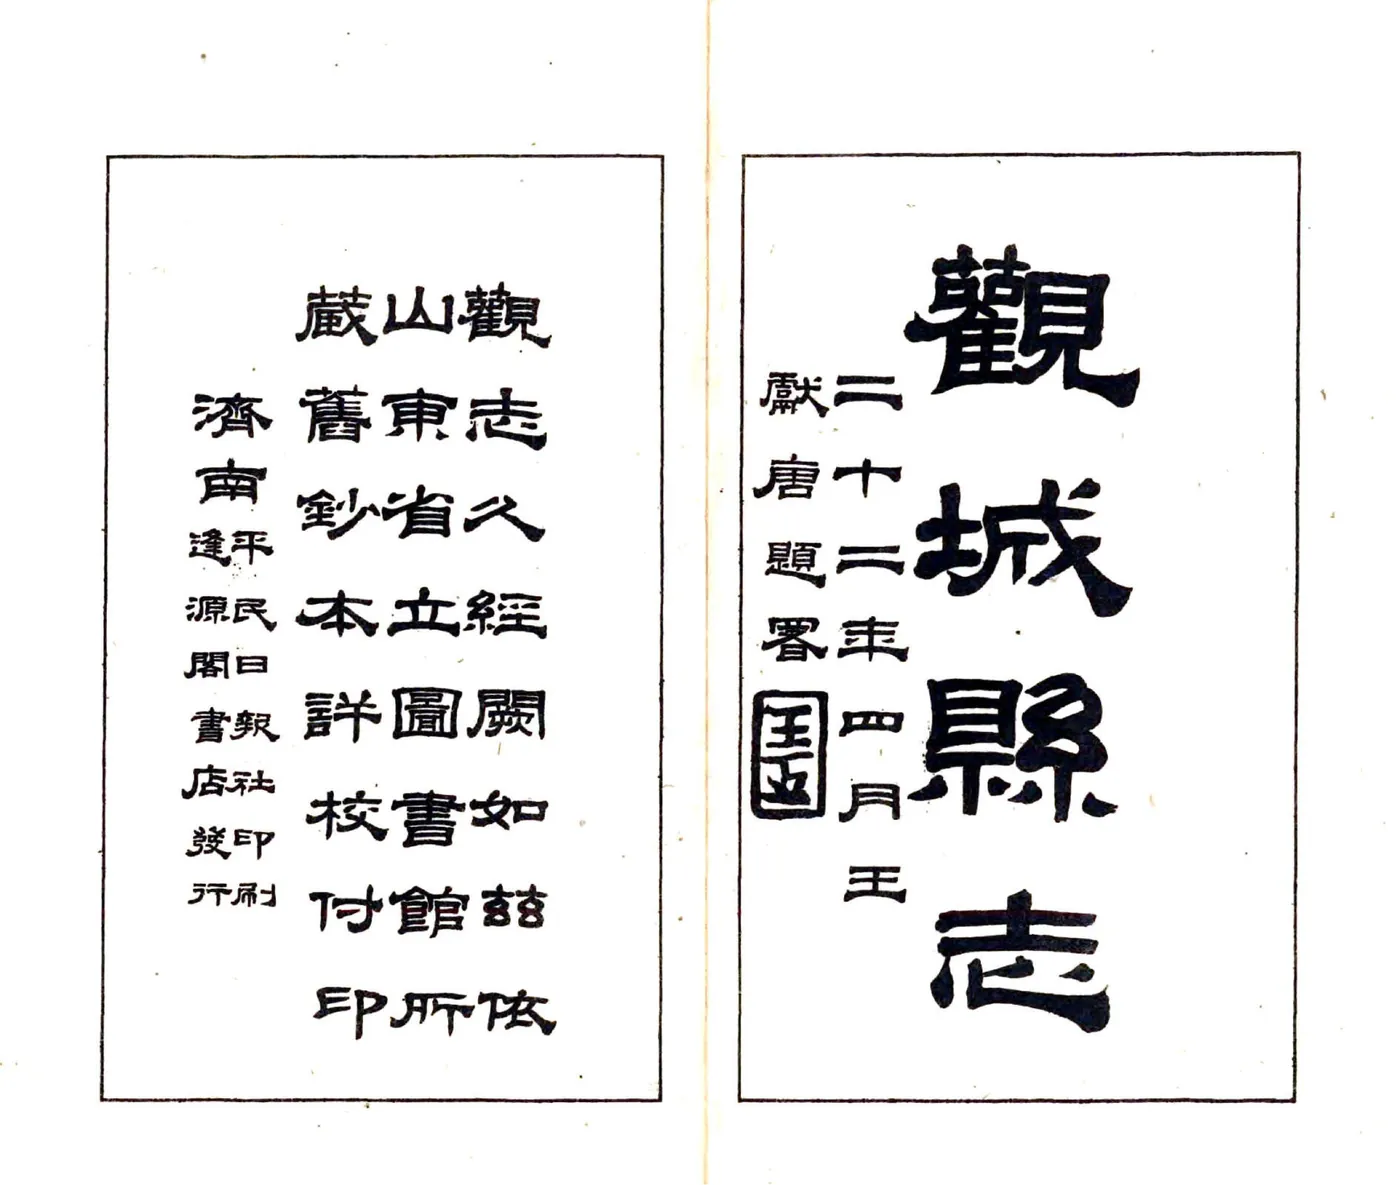 觀城縣志
二十二年四月王
獻唐題署
觀志久經闕如茲依
山東省立圖書館所
藏舊鈔本詳校付印
濟南
平民日報社印刷
逢源閣書店發行